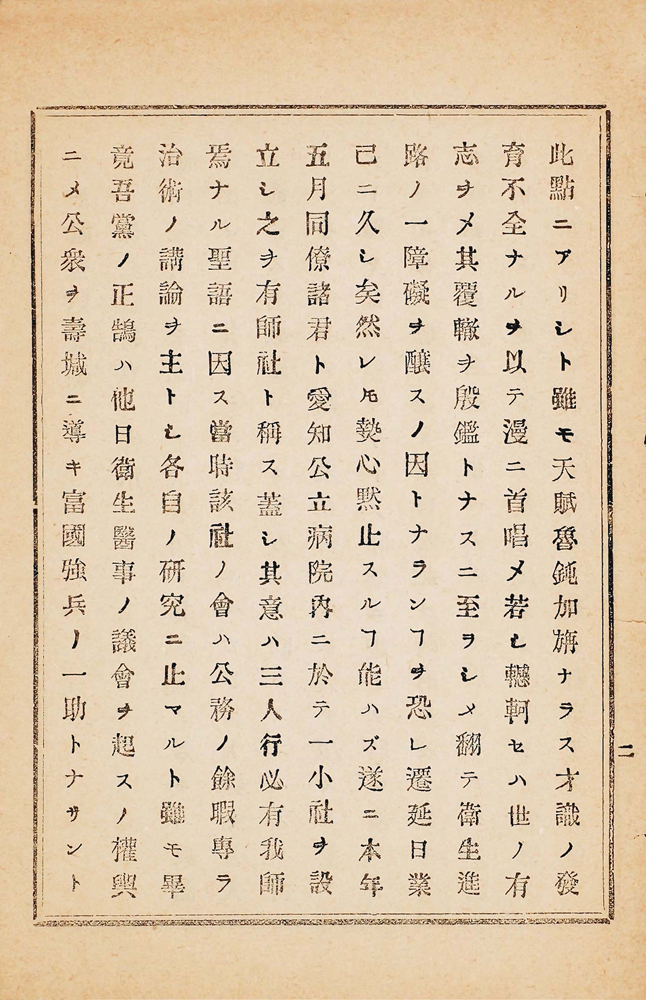 此點ニアリシト雖モ天賦魯鈍加旃ナラス才識ノ發
育不全ナルヲ以テ漫ニ首唱メ若シ轗軻セハ世ノ有
志ヲメ其覆轍ヲ殷鑑トナスニ至ヲシメ翻テ衛生進
路ノ一障礙ヲ釀スノ因トナランヿヲ恐レ遷延日業
己ニ久シ矣然レ𪜈㷀心默止スルヿ能ハズ遂ニ本年
五月同僚諸君ト愛知公立病院內ニ於テ一小社ヲ設
立シ之ヲ有師社ト稱ス蓋シ其意ハ三人行必有我師
焉ナル聖語ニ因ス當時該社ノ會ハ公務ノ餘暇專ラ
治術ノ講論ヲ主トシ各自ノ研究ニ止マルト雖モ畢
竟吾黨ノ正鵠ハ他日衛生醫事ノ議會ヲ起スノ權輿
ニメ公衆ヲ壽域ニ導キ富國強兵ノ一助トナサント
二